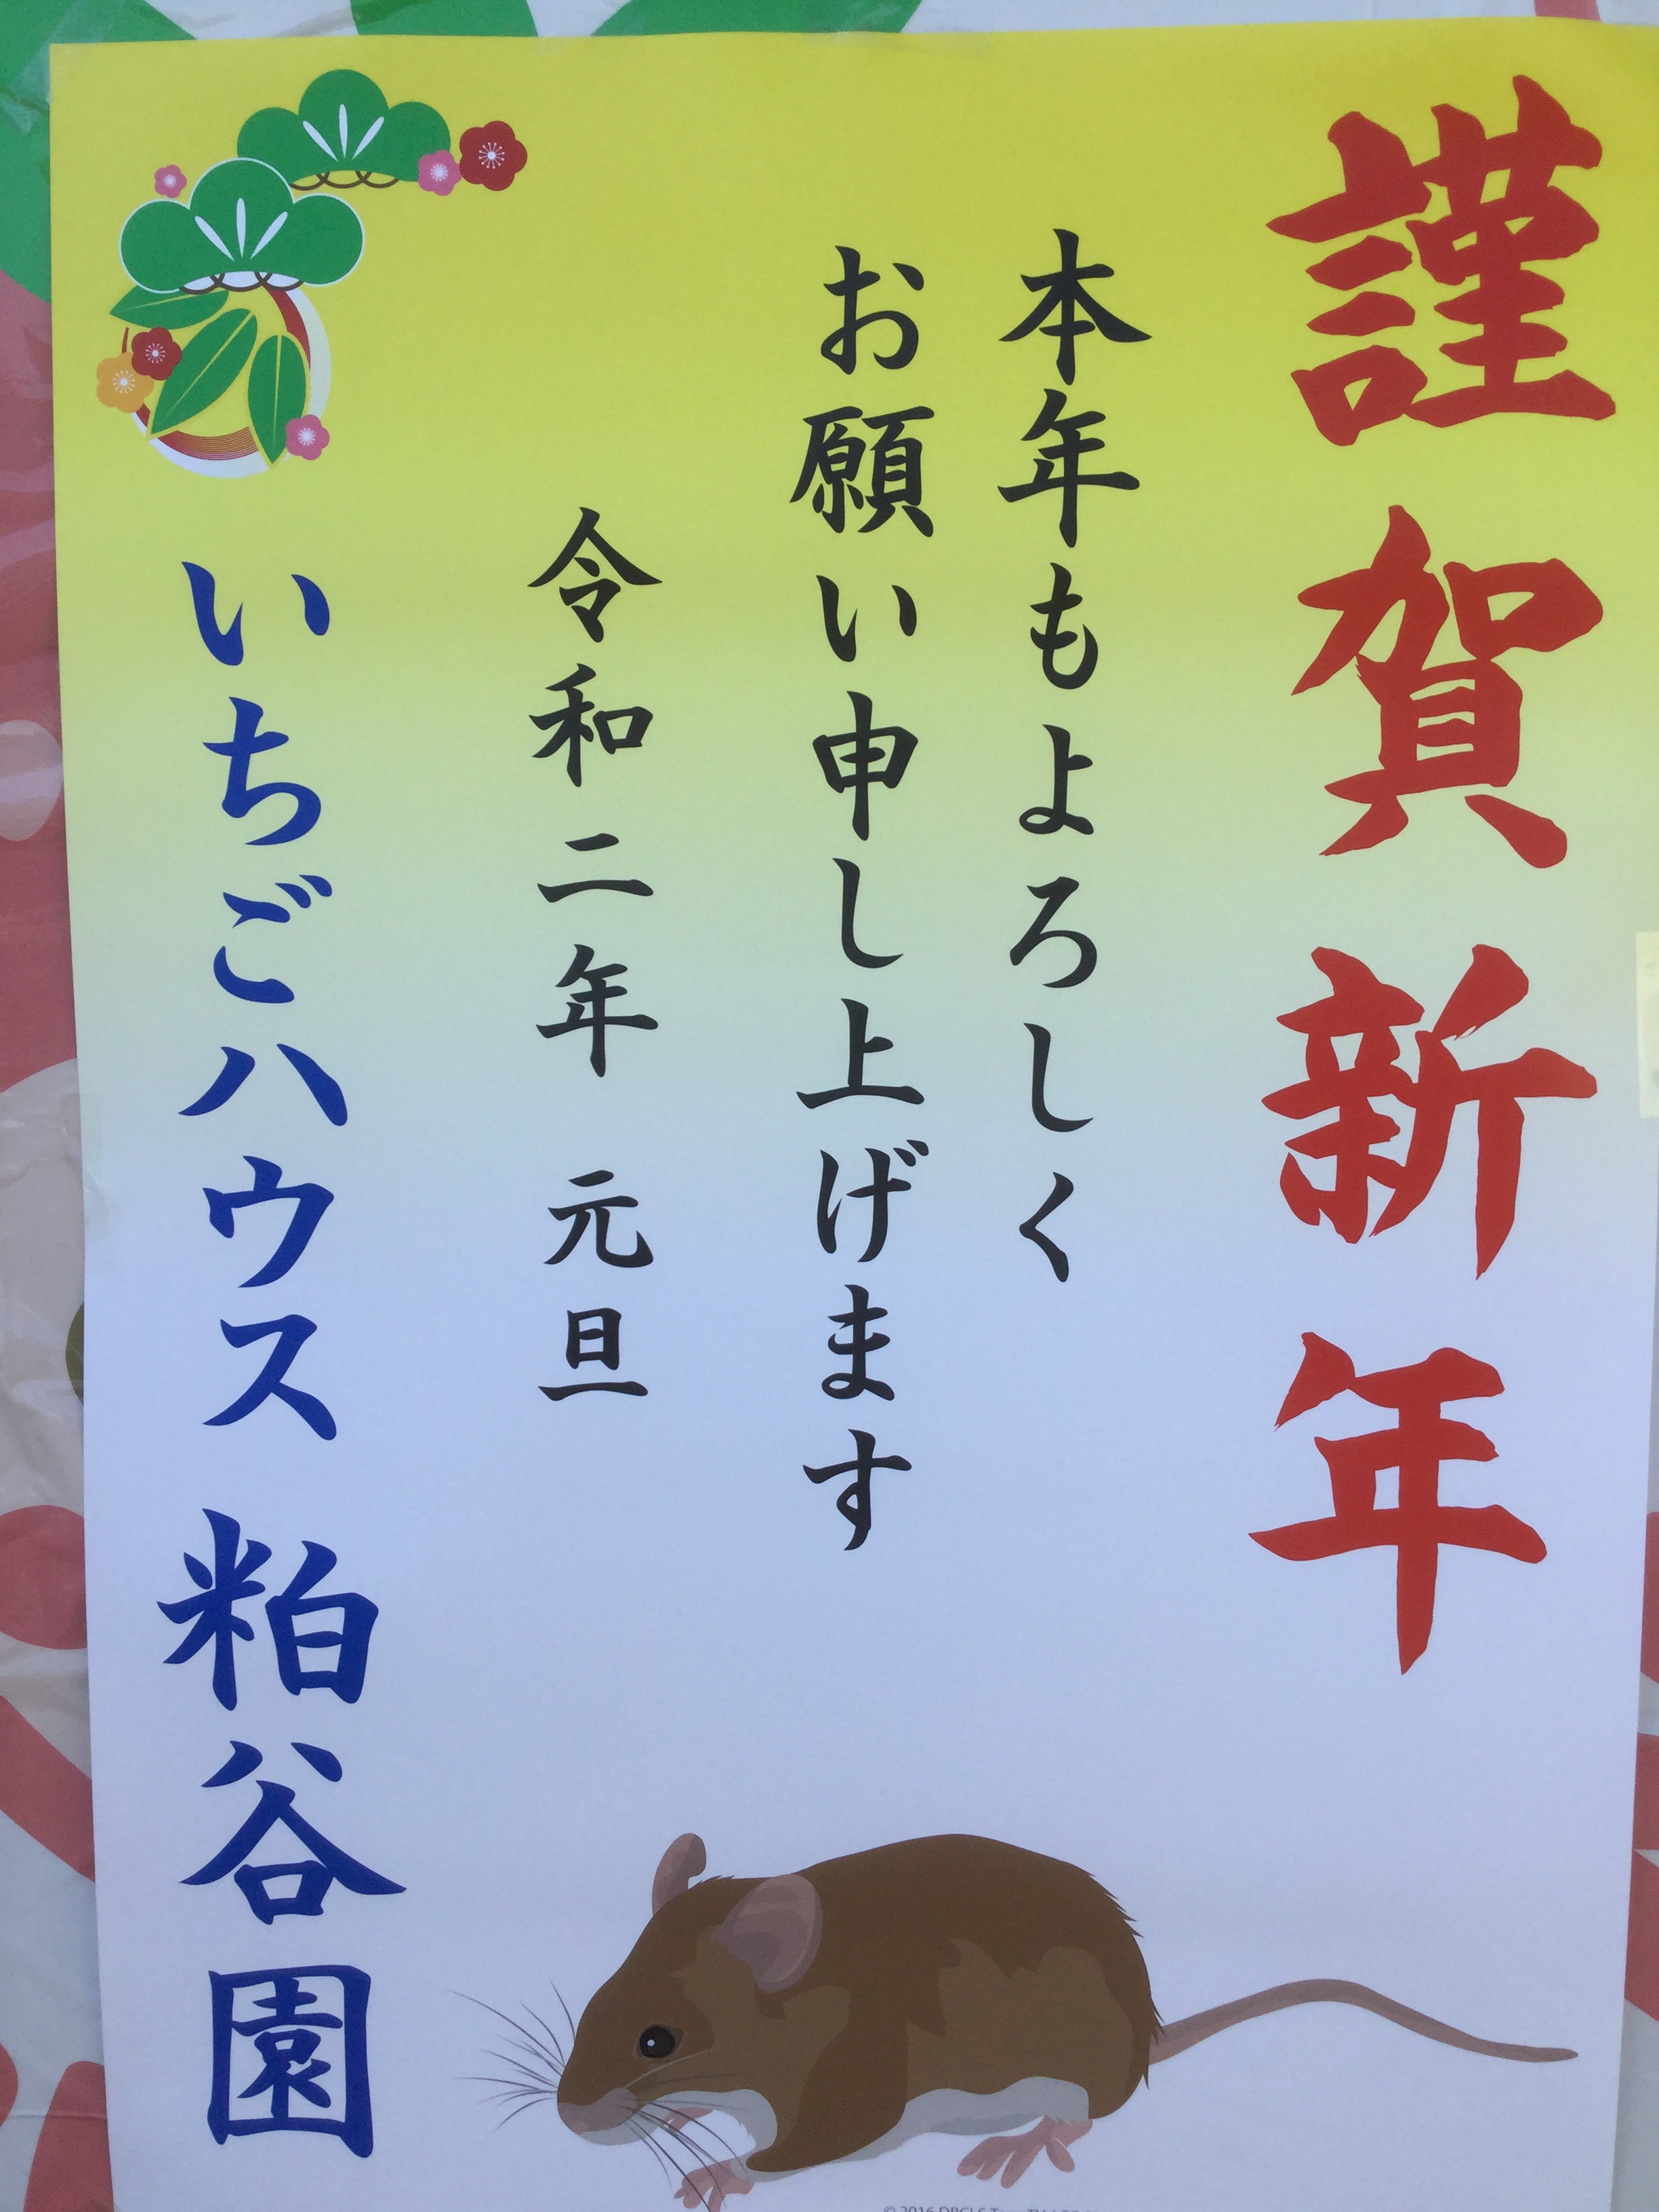 謹賀新年
本年もよろしく
お願い申し上げます
令和二年 元旦
いちごハウス 粕谷園
© 2016 DBCLS